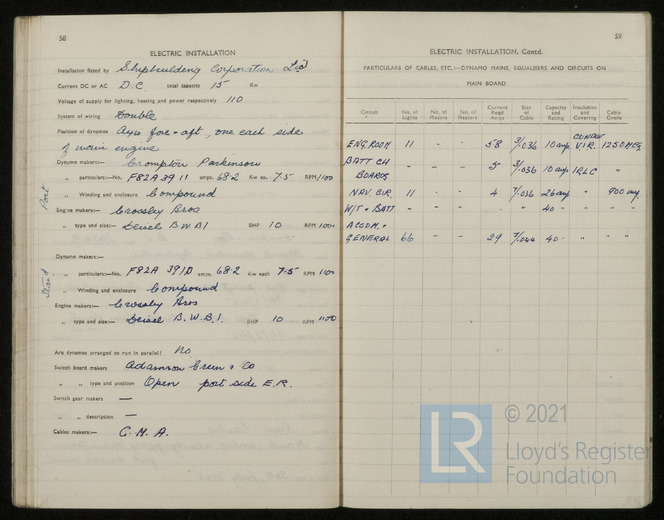 58
ELECTRIC INSTALLATION
Installation fitted by Shipbuilding Corporation Ltd
Current DC or AC D.C total capacity 15 Kw
Voltage of supply for lighting, heating and power respectively 110
System of wiring Double
Position of dynamos fore & aft, one each side
of main engine
Dynamo makers:— Crompton Parkinson
Port
„ particulars:—No. F82A 39 11 amps. 68.2 Kw ea. 7.5 RPM 1100
„ Winding and enclosure Compound
Engine makers:— Crossley Bros
„ type and size:— Deisel B.W.B1 BHP 10 RPM 1100
Dynamo makers:—
Starbd
„ particulars:—No. F82A 391D amps. 68.2 Kw each 7.5 RPM 1100
„ Winding and enclosure Compound
Engine makers:— Crossley Bros
„ type and size:— Deisel B.W.B.1. BHP 10 RPM 1100
Are dynamos arranged to run in parallel? No
Switch board makers Adamson Green & Co
„ „ type and position Open port side E.R.
Switch gear makers —
„ „ description —
Cables makers:— C.M.A.
59
ELECTRIC INSTALLATION, Contd.
PARTICULARS OF CABLES, ETC.:—DYNAMO MAINS, EQUALISERS AND CIRCUITS ON
MAIN BOARD
Circuit No. of Lights No. of Motors No. of Heaters Current Read Amps Size of Cable Capacity and Rating Insulation and Covering Cable Grade
ENG. ROOM 11 - - 58 3/.036 10 amp V.I.R. 1250 MEG
BATT CH
BOARDS - - - 5 3/.036 10 amp „
NAV CIR. 11 - - 4 7/.036 26 amp „ 900 „
W/T & BATT „ 40 - „ „
ACCOM. &
GENERAL 66 29 7/.044 40 - „ „
LR
© 2021
Lloyd's Register
Foundation